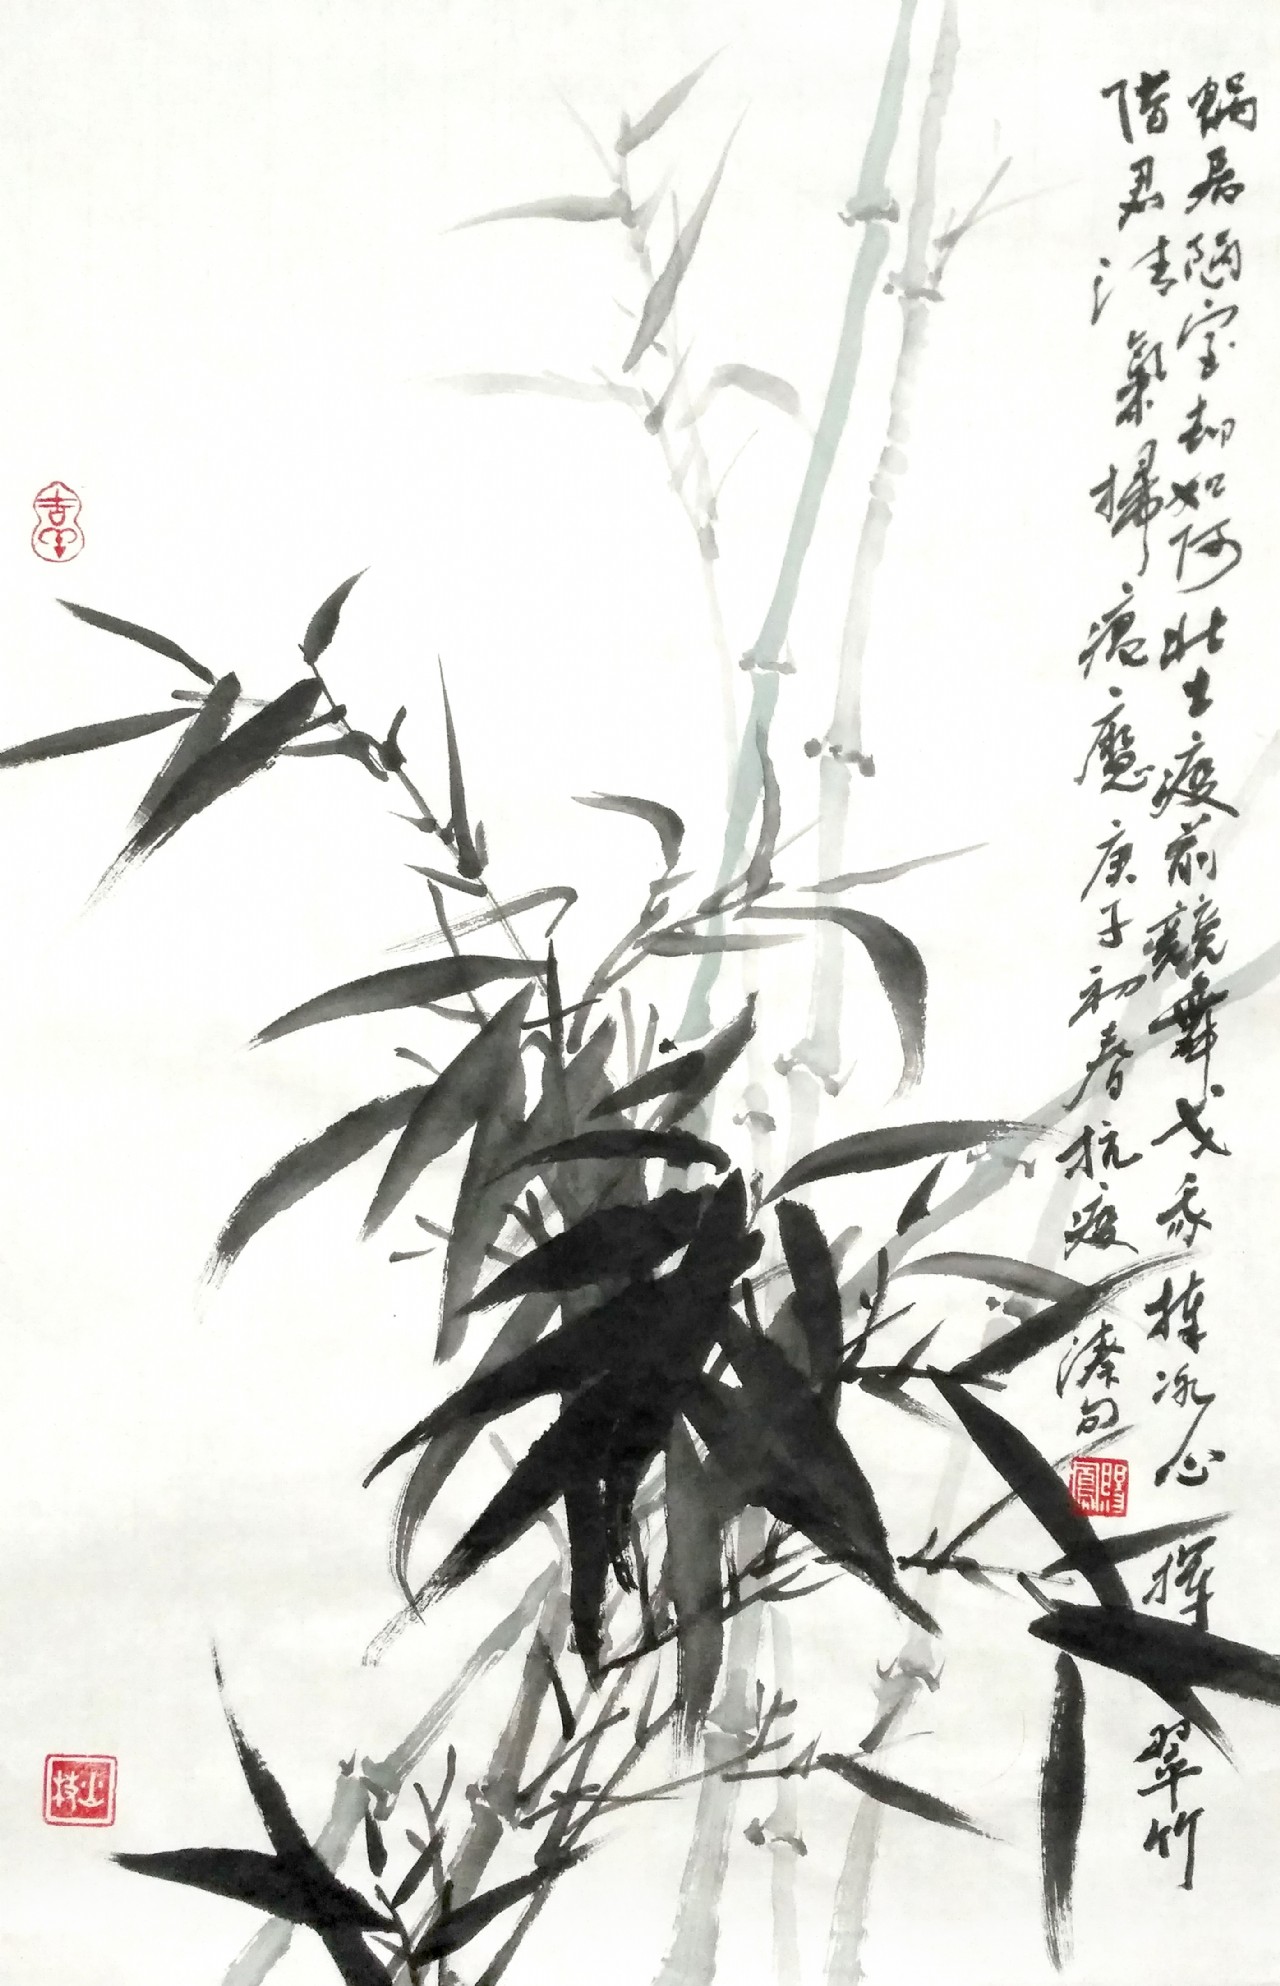 蝸居陋室却如何壯士疫前競舞戈我捧冰心揮翠竹
借君清氣掃瘟魔庚子初春抗疫濤句